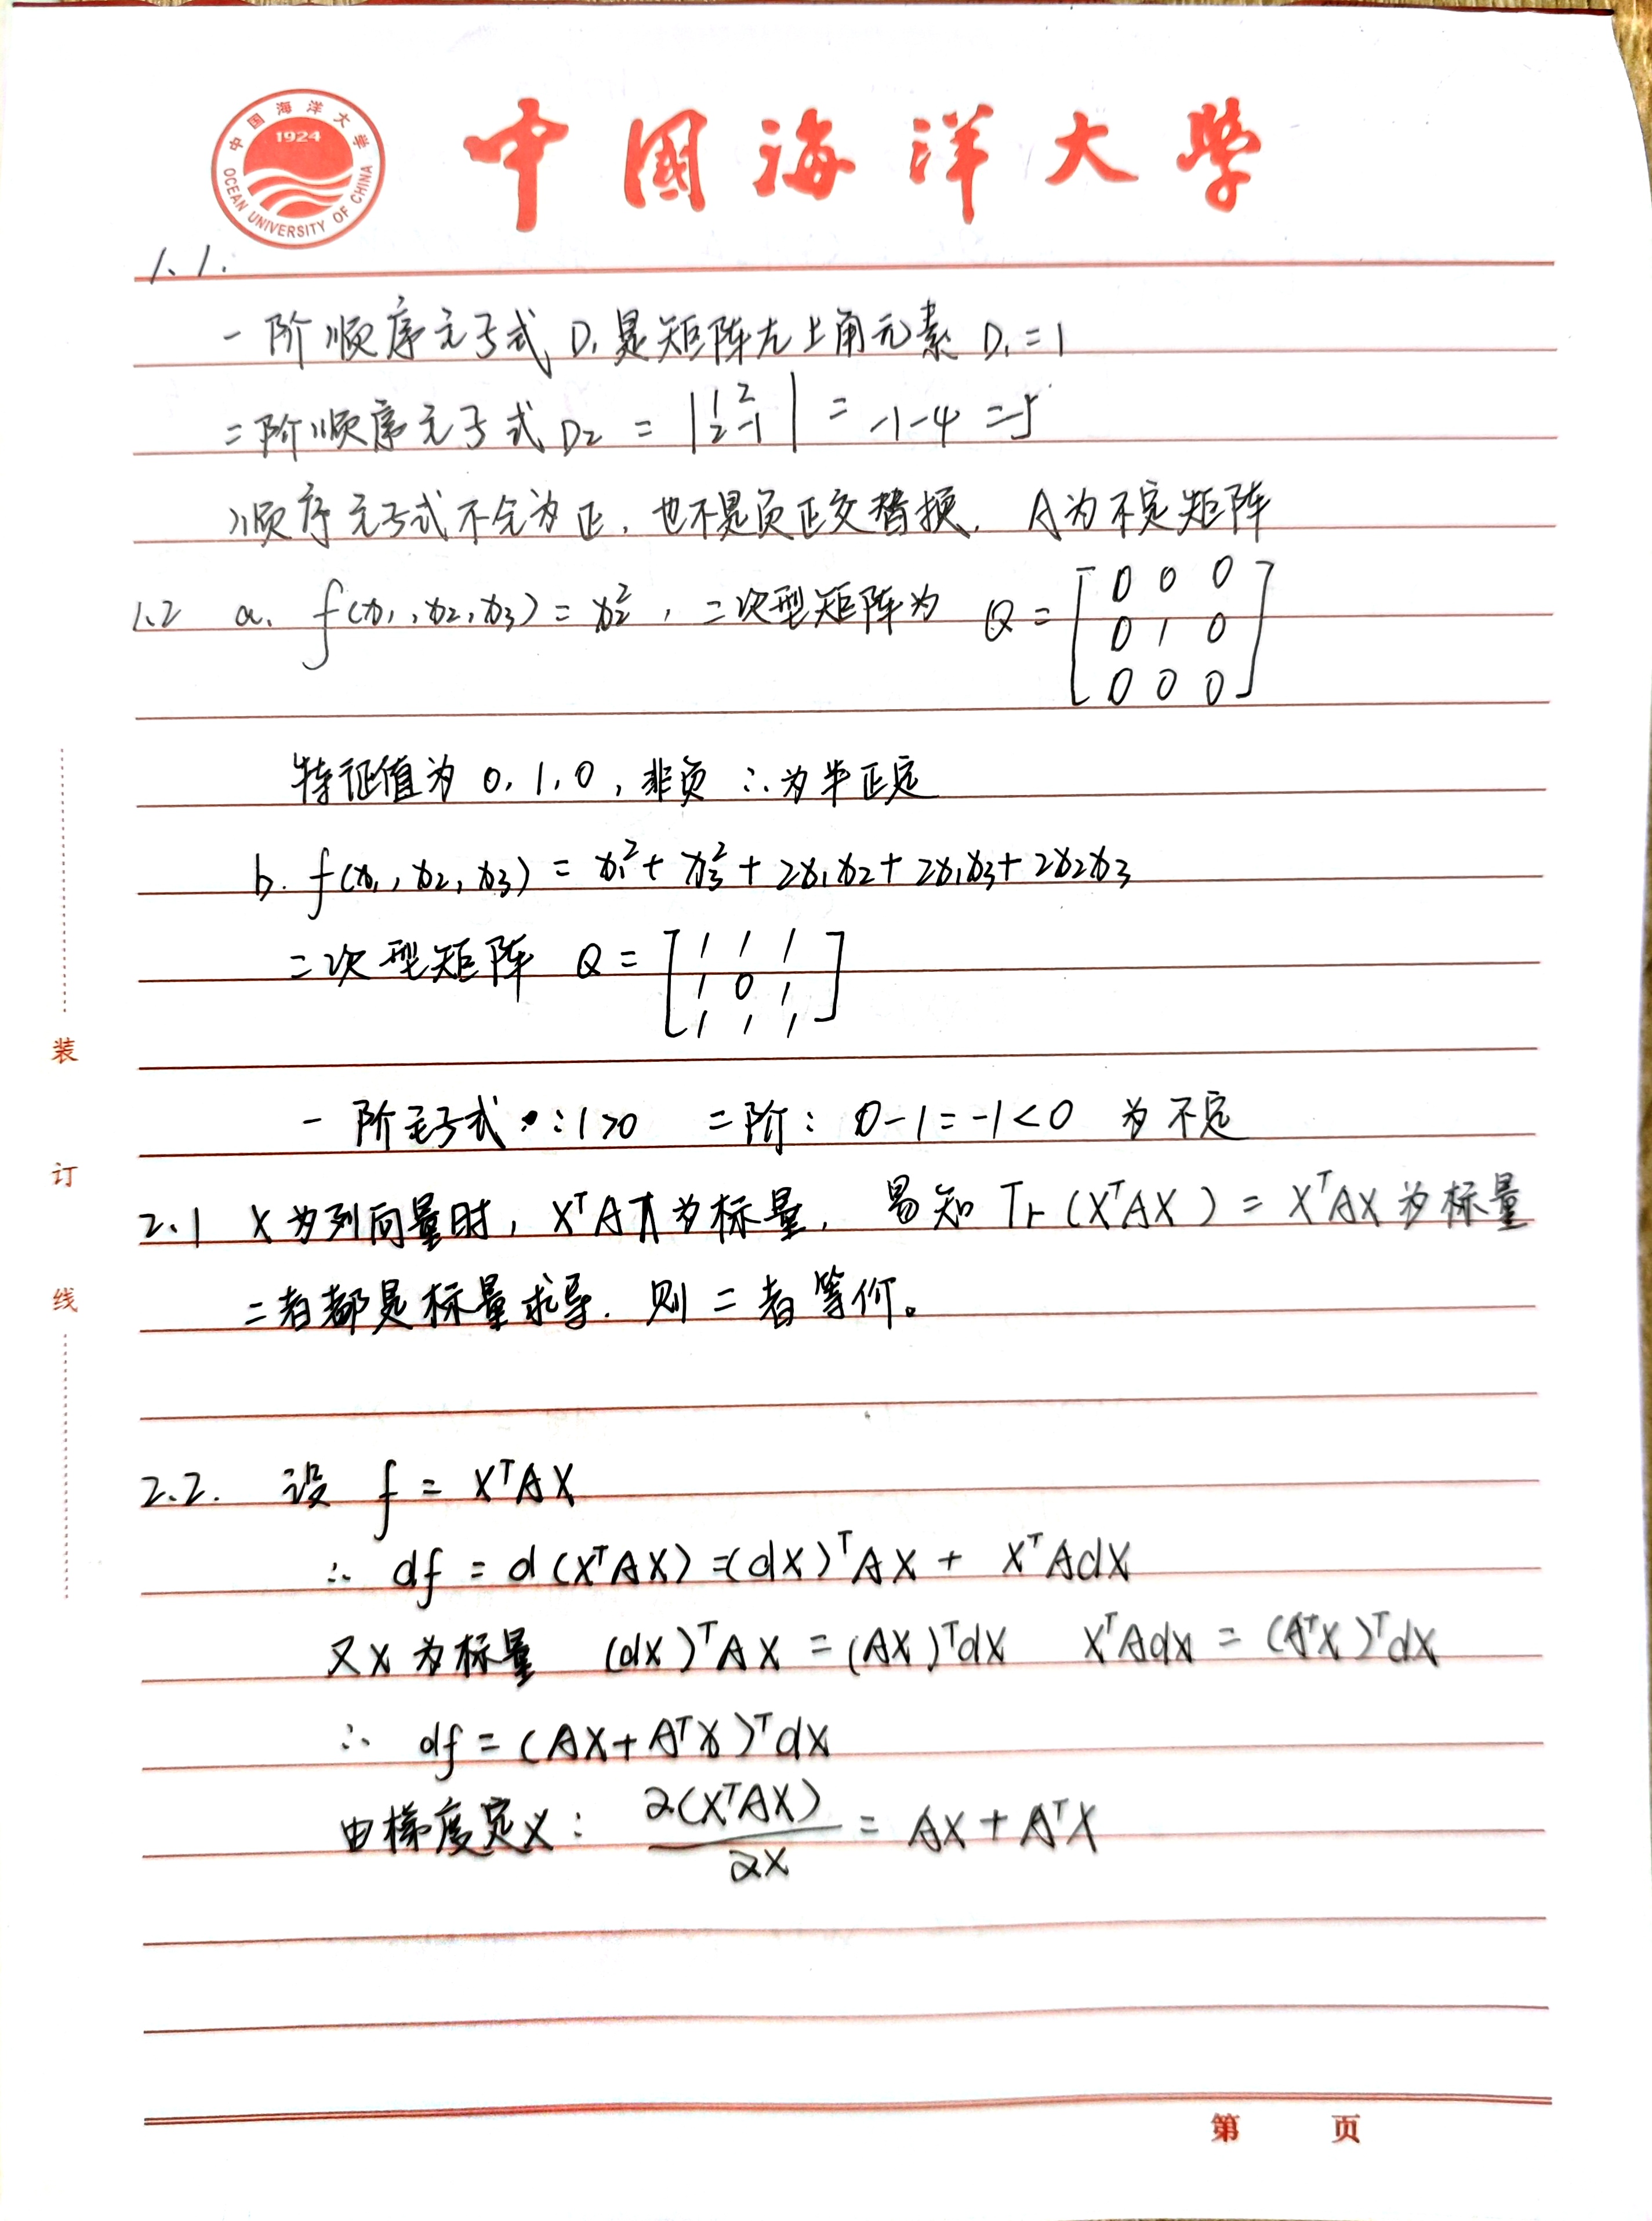 中国海洋大学
1924
OCEAN UNIVERSITY OF CHINA
中國海洋大學
1.1.
一阶顺序主子式 D₁是矩阵左上角元素 D₁=1
二阶顺序主子式 D₂ = |1 2 2 -1| = -1-4 =-5
顺序主子式不全为正,也不是负正交替换. A为不定矩阵
1.2 a. f(x₁,x₂,x₃) = x₂², 二次型矩阵为 Q = [0 0 0
0 1 0
0 0 0]
特征值为 0,1,0,非负 ∴为半正定
b. f(x₁,x₂,x₃) = x₁²+ x₃² + 2x₁x₂+ 2x₁x₃+ 2x₂x₃
二次型矩阵 Q = [1 1 1
1 0 1
1 1 1]
一阶主子式:1>0 二阶: 0-1=-1<0 为不定
2.1 X为列向量时, XᵀAX为标量, 易知 Tr(XᵀAX) = XᵀAX为标量
二者都是标量求导. 则二者等价。
2.2. 设 f = XᵀAX
∴ df = d(XᵀAX) =(dX)ᵀAX + XᵀAdX
又X为标量 (dX)ᵀAX = (AX)ᵀdX XᵀAdX = (AᵀX)ᵀdX
∴ df = (AX+AᵀX)ᵀdX
由梯度定义: ∂(XᵀAX)/∂X = AX + AᵀX
装
订
线
第 页